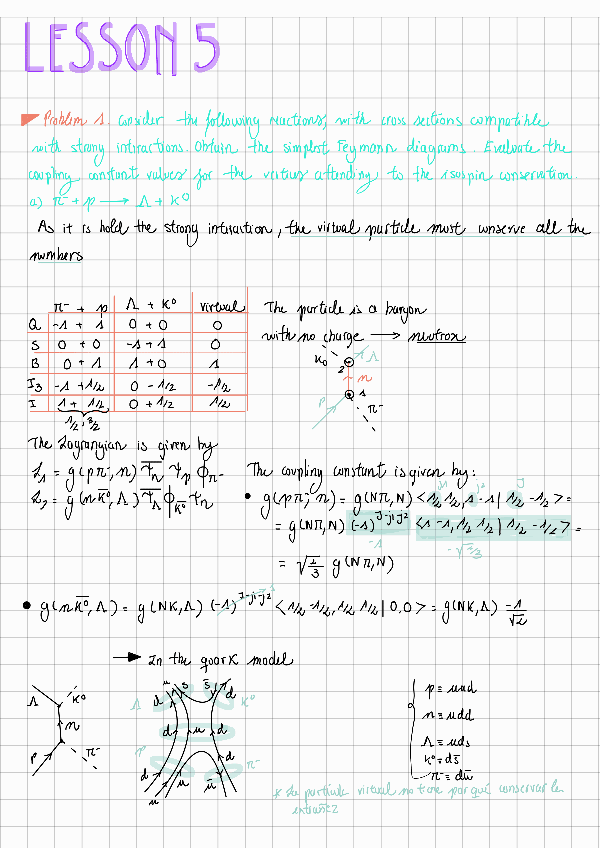 LESSON 5
Problem 1. Consider the following reactions, with cross sections compatible
with strong interactions. Obtain the simplest Feymann diagrams. Evaluate the
coupling constant values for the vertices attending to the isospin conservation.
a) π⁻ + p ⟶ Λ + K⁰
As it is hold the strong interaction, the virtual particle must conserve all the
numbers
π⁻ + p Λ + K⁰ virtual
Q -1 + 1 0 + 0 0
S 0 + 0 -1 + 1 0
B 0 + 1 1 + 0 1
I₃ -1 + 1/2 0 - 1/2 -1/2
I 1 + 1/2 0 + 1/2 1/2
1/2, 3/2
The particle is a baryon
with no charge ⟶ neutron
K⁰ Λ
2
n
1
p π⁻
The Lagrangian is given by
The coupling constant is given by:
j1 j2 J
• g(pπ⁻, n) = g(Nπ, N) <1/2 1/2, 1 -1 | 1/2 -1/2> =
= g(Nπ, N) (-1)^J-j1-j2 <1 -1, 1/2 1/2 | 1/2 -1/2> =
-1 -√2/3
= √2/3 g(Nπ, N)
• g(nK̅⁰, Λ) = g(NK, Λ) (-1)^J-j1-j2 <1/2 -1/2, 1/2 1/2 | 0,0> = g(NK, Λ) -1/√2
⟶ In the quark model
Λ K⁰
n
p π⁻
u s s̅ d
Λ d K⁰
d u d
p π⁻
d u u̅ d
u
p ≡ uud
n ≡ udd
Λ ≡ uds
K⁰ = ds̅
π⁻ = du̅
* La partícula virtual no tiene por qué conservar la